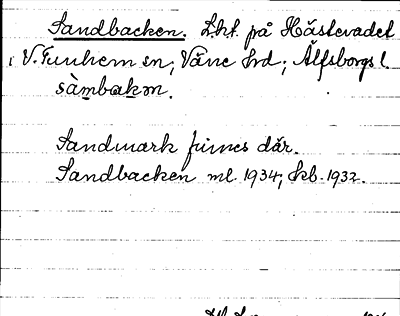 Sandbacken. Lht. på Hästevadet
i V. Tunhem sn, Väne hd; Älfsborgs l.
sàmbakən.
Sandmark finnes där.
Sandbacken ml. 1934; kb. 1932.